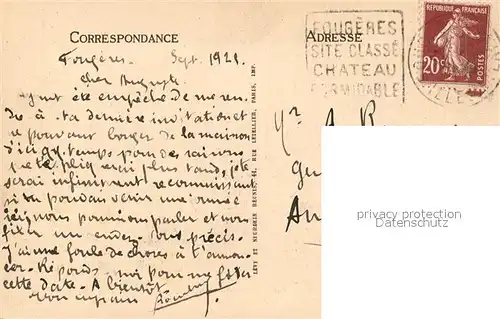 CORRESPONDANCE
ADRESSE
FOUGÈRES
SITE CLASSÉ
CHATEAU
FORMIDABLE
RÉPUBLIQUE FRANÇAISE
20c
POSTES
Fougères. Sept. 1921.
Cher Auguste
Ayant été empêché de me ren
dre à ta dernière invitation et
ne pouvant bouger de la maison
d'ici qq. temps pour des raisons
que je t'expliquerai plus tard, je te
serai infiniment reconnaissant
si tu pouvais venir
ici, nous pourrions parler et nous
fixer un endroit précis.
J'ai une foule de choses à t'annon
cer. Réponds-moi pour me fixer
cette date. A bientôt
ton copain
LÉVY ET NEURDEIN RÉUNIS, 44, RUE LETELLIER, PARIS, IMP.
Mr A. R
privacy protection
www.